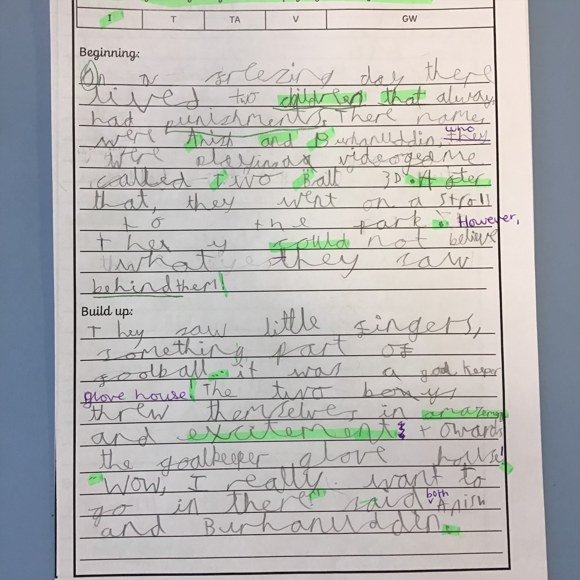 I T TA V GW
Beginning:
On a freezing day there
lived two children that always
had punishments. There names
were Anish and Burhanuddin, who they
were playing a videogame
called Two Ball 3D. After
that, they went on a stroll
to the park. However,
they could not believe
what they saw
behind them!
Build up:
They saw little fingers,
something part of
football... it was a goal keeper
glove house! The two boys
threw themselves in
and excitement towards
the goalkeeper glove house!
"Wow, I really want to
go in there" said both Anish
and Burhanuddin.